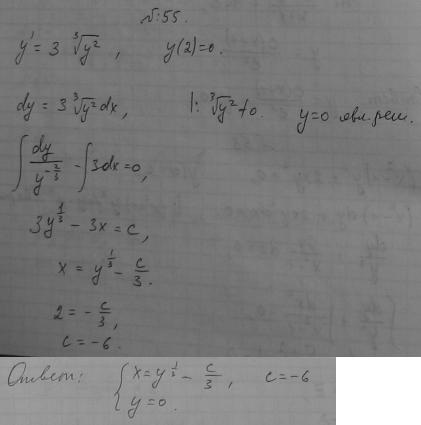 №55.
y' = 3 ∛y², y(2)=0.
dy = 3 ∛y² dx, |: ∛y² ≠ 0. y=0 явл. реш.
∫ dy / y^(-2/3) - ∫ 3dx = 0,
3y^(1/3) - 3x = c,
x = y^(1/3) - c/3.
2 = - c/3,
c = -6.
Ответ: { x = y^(1/3) - c/3, c = -6
y = 0.